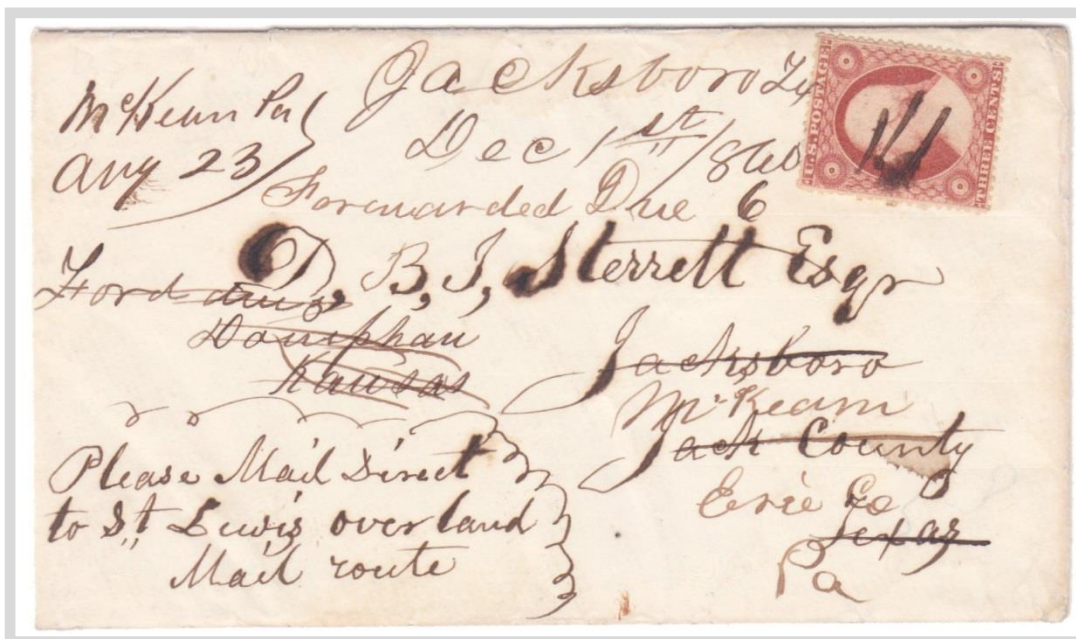 McKean Pa
Aug 23
Jacksboro Tx
Dec 1st/860
Forwarded Due 6
U.S. POSTAGE
THREE CENTS
D, B, J, Sterrett Esqr
Doniphan
Kansas
Jacksboro
McKean
Jack County
Erie Co
Texas
Pa
Please Mail Direct
to St Lewis over land
Mail route